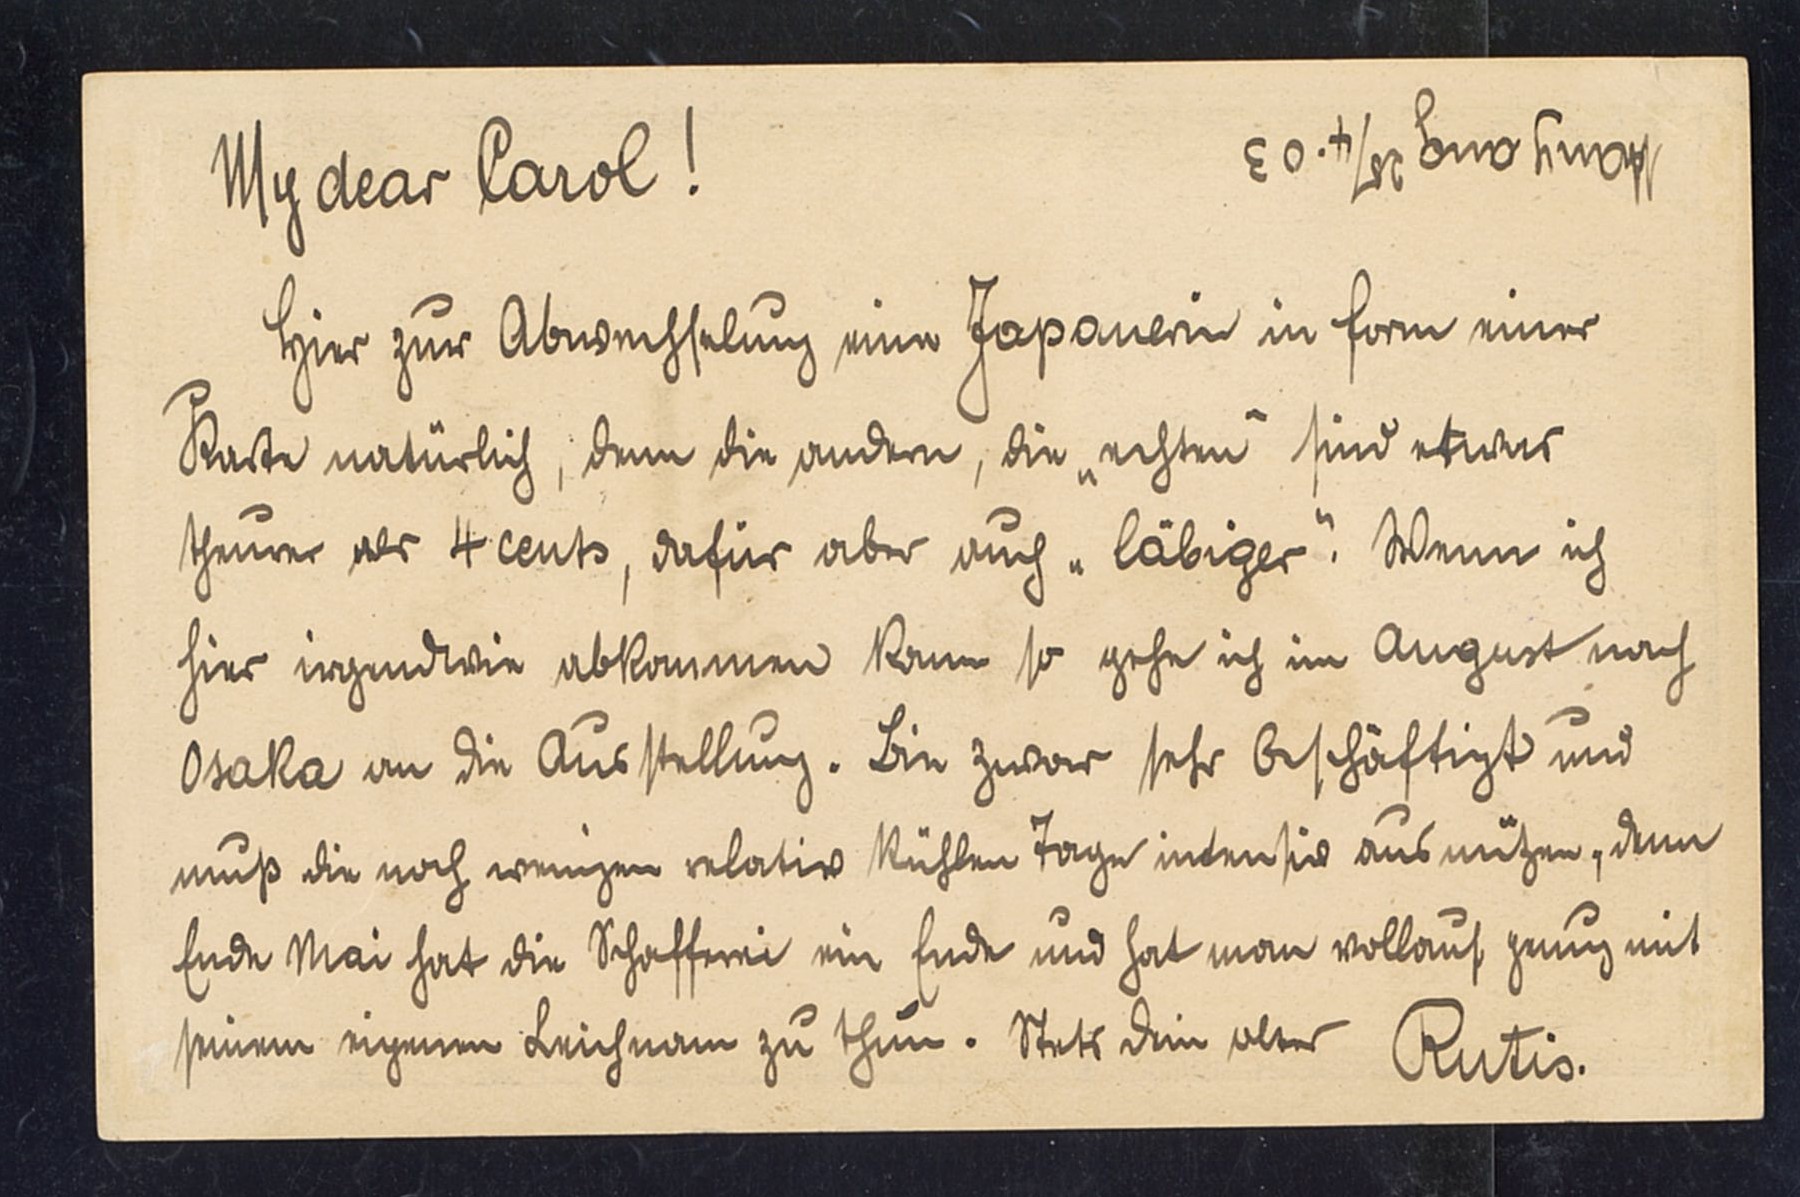 My dear Carol!
Hier zur Abwechselung eine Japanerin in form einer
Karte natürlich, denn die andern, die „echten“ sind etwas
theurer als 4 cents, dafür aber auch „läbiger“. Wenn ich
hier irgendwie abkommen kann so gehe ich im August nach
Osaka an die Ausstellung. Bin zwar sehr beschäftigt und
muß die noch wenigen relativ kühlen Tage intensiv ausnützen, denn
Ende Mai hat die Schafferei ein Ende und hat man vollauf genug mit
seinem eigenen Leichnam zu thun. Stets dein alter Rutis.